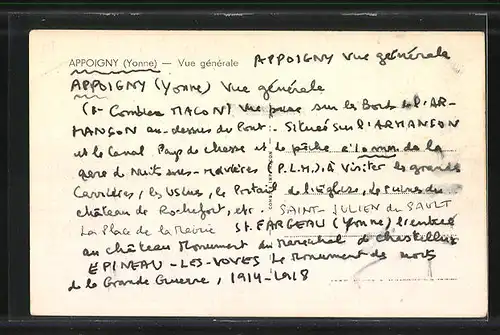 APPOIGNY (Yonne) — Vue générale APPOIGNY Vue générale
APPOIGNY (Yonne) Vue générale
(Et Combier MACON) Vue prise sur les Bords de l'AR-
MANSON au-dessus du Pont. Située sur l'ARMANSON
et le Canal Pays de chasse et de pêche à 10 mn de la
gare de Nuits sous-Ravières (P.L.M.), à visiter les grandes
Carrières, les Usines, le Portail de l'église, les ruines du
château de Rochefort, etc. SAINT-JULIEN du SAULT
La Place de la Mairie St. FARGEAU (Yonne) l'entrée
au château Monument du Maréchal de chastellux
EPINEAU-LES-VOVES Le Monument des morts
de la Grande Guerre, 1914-1918